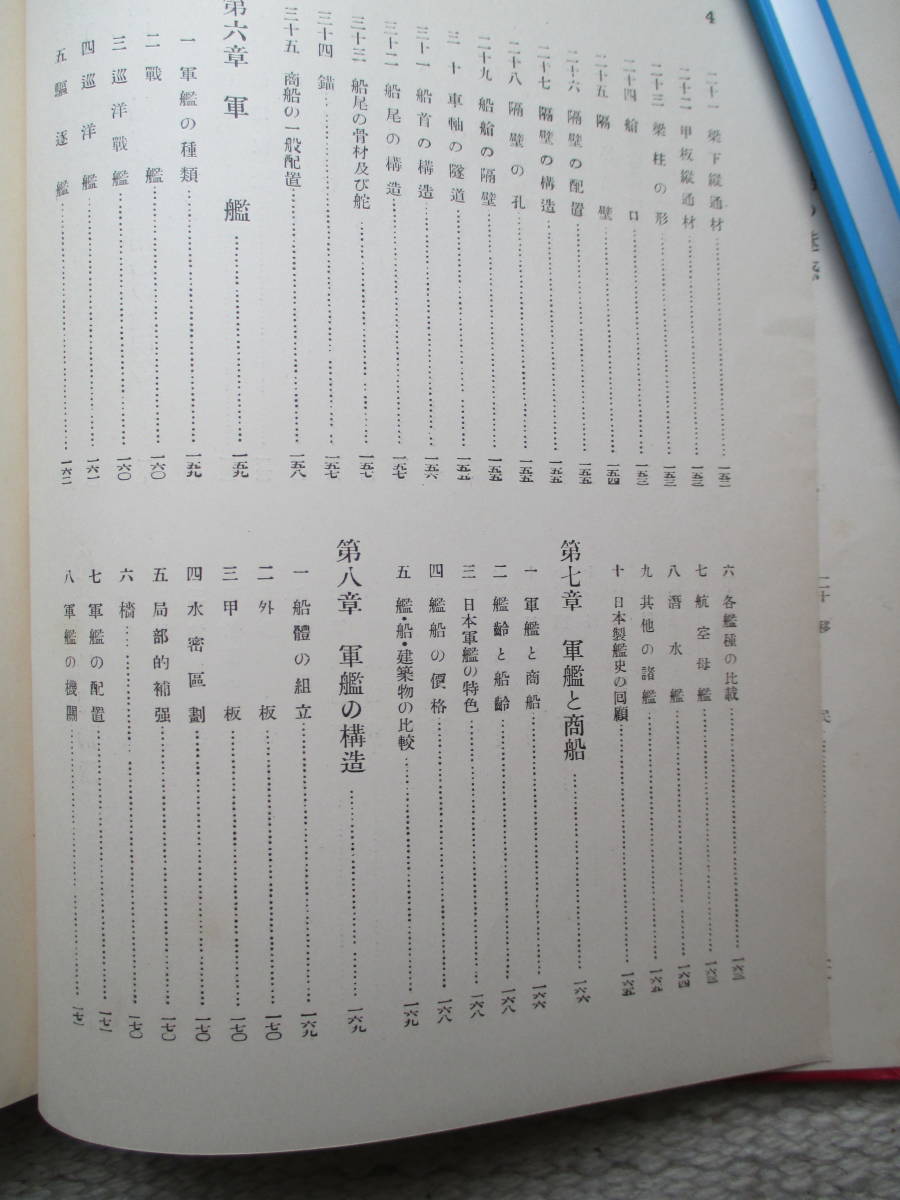 4
二十一 梁下縱通材 一五二
二十二 甲板縱通材 一五二
二十三 梁柱の形 一五三
二十四 艙口 一五三
二十五 隔壁 一五四
二十六 隔壁の配置 一五五
二十七 隔壁の構造 一五五
二十八 隔壁の孔 一五五
二十九 船艙の隔壁 一五五
三十 車軸の隧道 一五五
三十一 船首の構造 一五六
三十二 船尾の構造 一五七
三十三 船尾の骨材及び舵 一五七
三十四 錨 一五七
三十五 商船の一般配置 一五八
第六章 軍艦 一五九
一 軍艦の種類 一五九
二 戰艦 一六〇
三 巡洋戰艦 一六〇
四 巡洋艦 一六一
五 驅逐艦 一六二
六 各艦種の比載 一六三
七 航空母艦 一六三
八 潛水艦 一六四
九 其他の諸艦 一六五
十 日本製艦史の回顧 一六五
第七章 軍艦と商船 一六六
一 軍艦と商船 一六六
二 艦齡と船齡 一六八
三 日本軍艦の特色 一六八
四 艦船の價格 一六八
五 艦・船・建築物の比較 一六九
第八章 軍艦の構造 一六九
一 船體の組立 一六九
二 外板 一七〇
三 甲板 一七〇
四 水密區劃 一七〇
五 局部的補强 一七〇
六 檣 一七〇
七 軍艦の配置 一七一
八 軍艦の機關 一七一